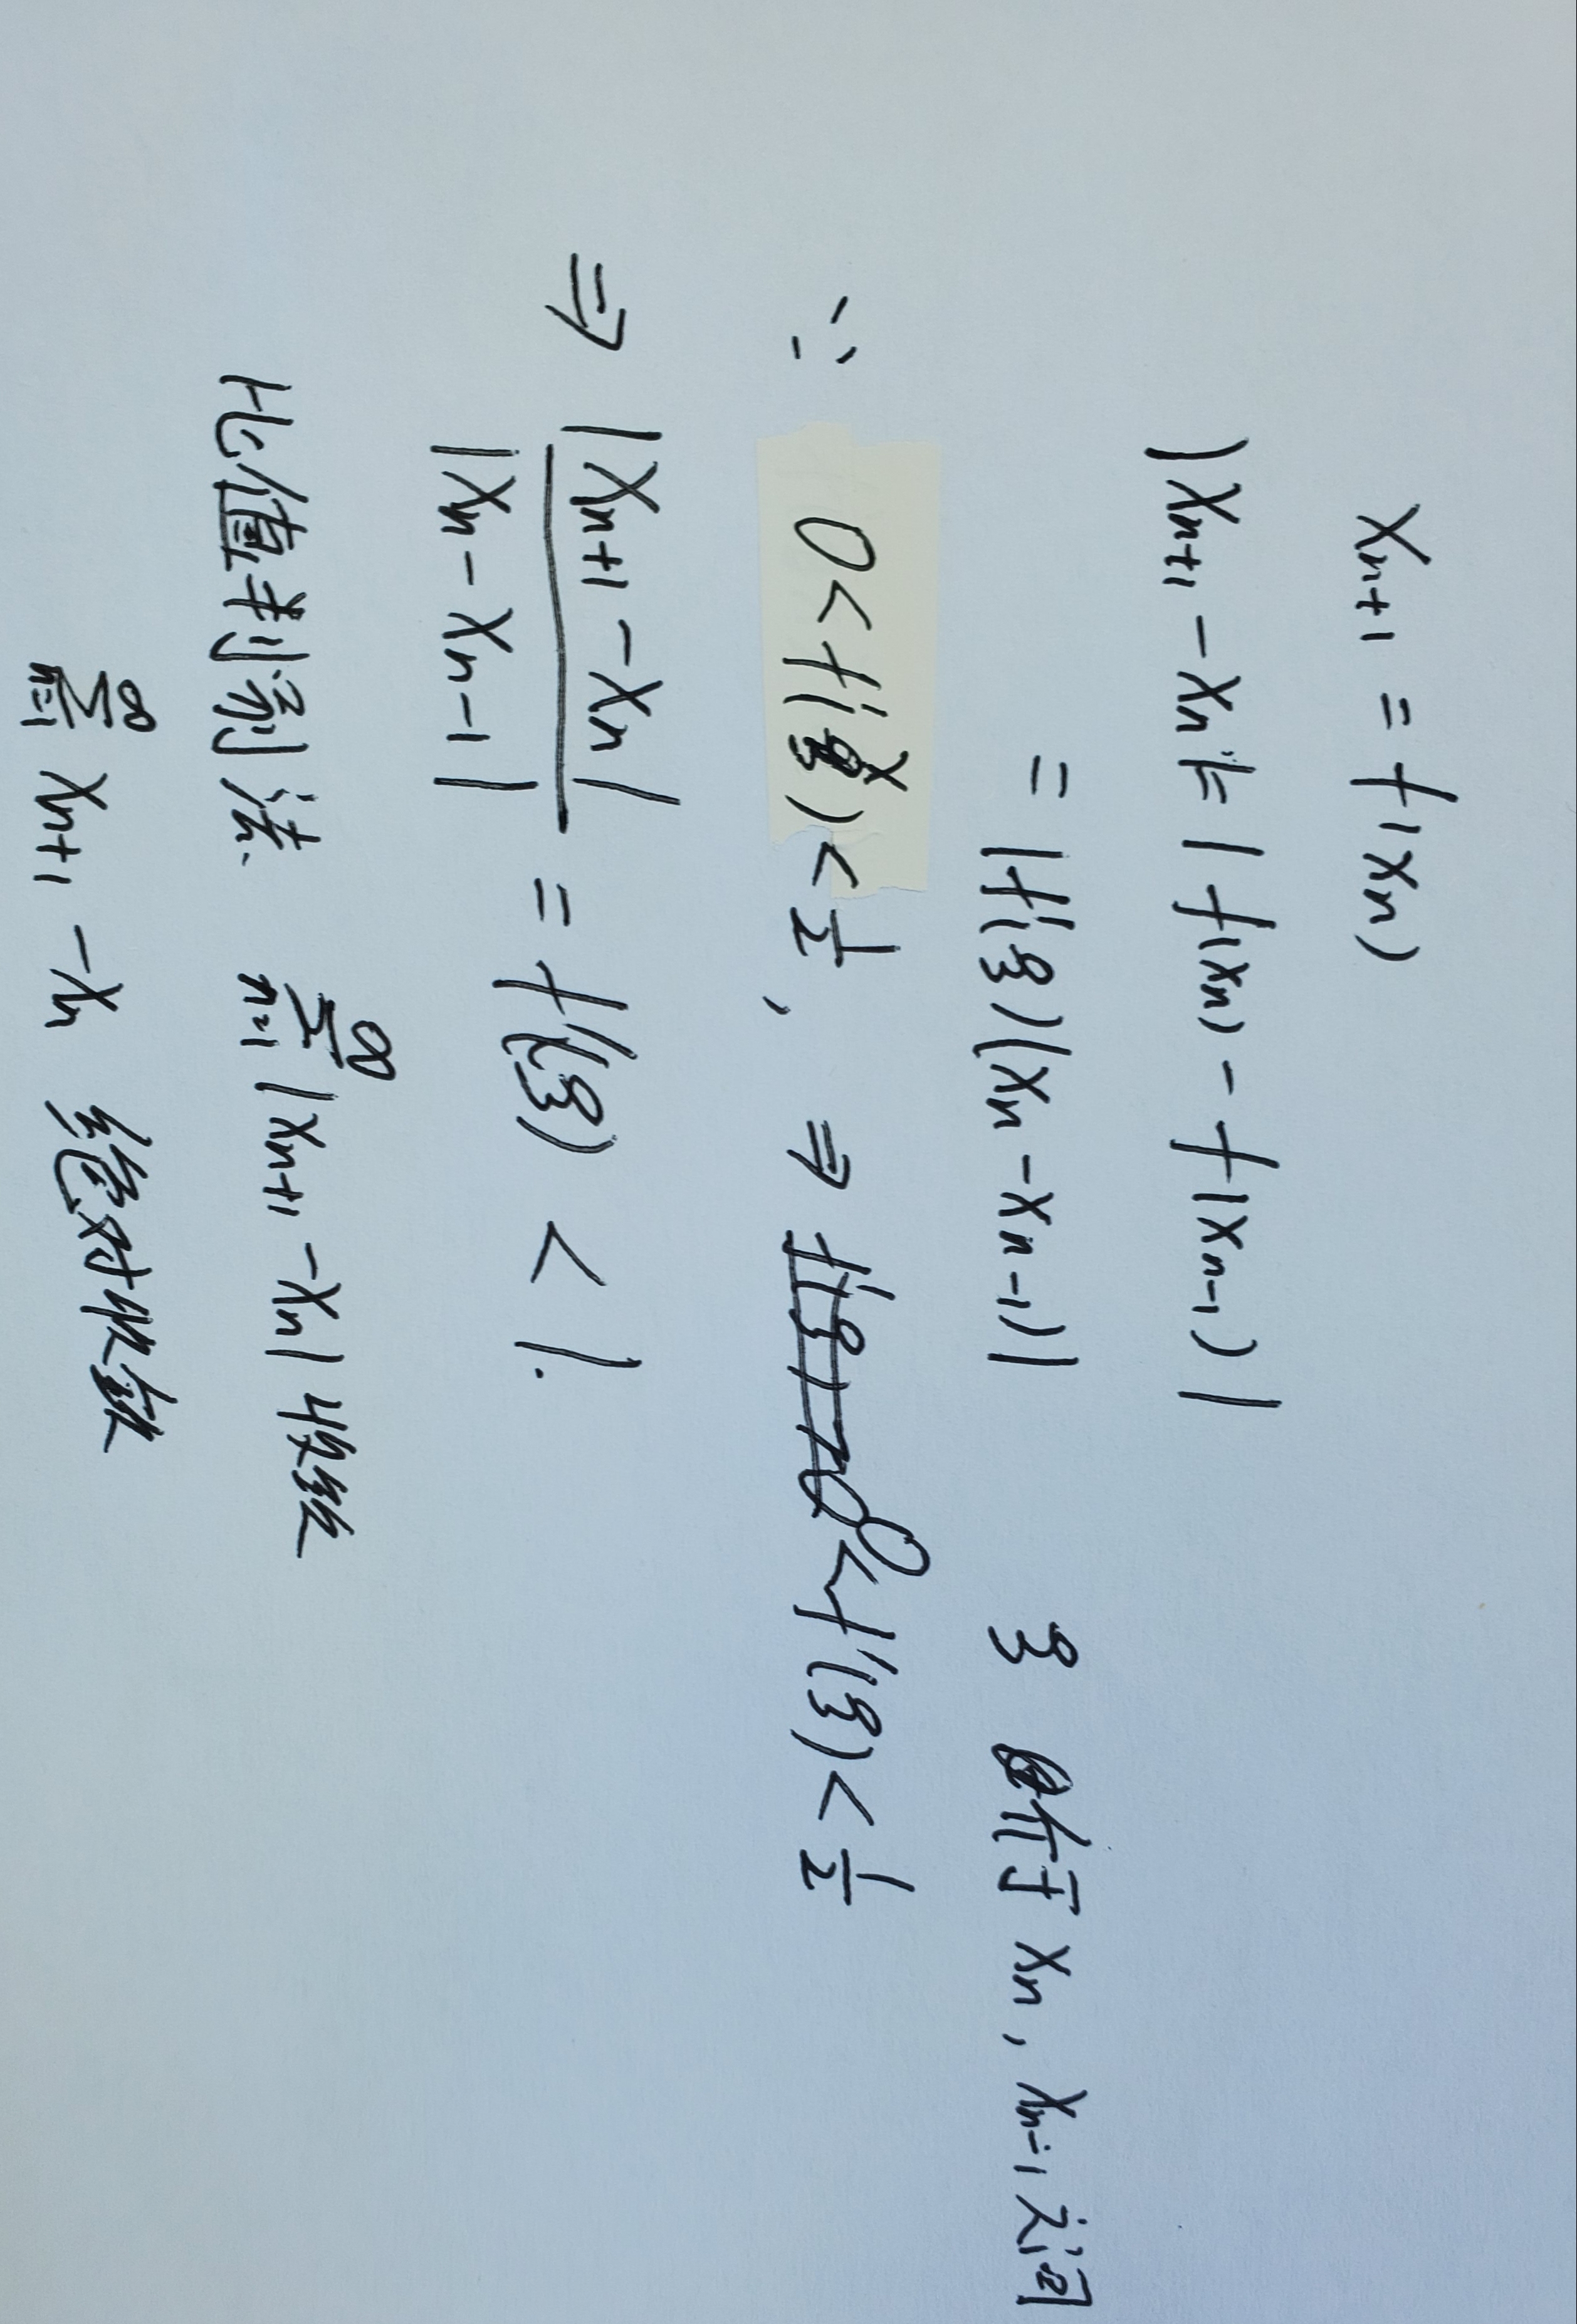 Xn+1 = f(Xn)
|Xn+1 - Xn| = | f(Xn) - f(Xn-1) |
= |f'(ξ)(Xn - Xn-1)| ξ 介于 Xn, Xn-1 之间
∵ 0 < f'(x) < 1/2, ⇒ 0 < f'(ξ) < 1/2
⇒ |Xn+1 - Xn| / |Xn - Xn-1| = f'(ξ) < 1.
比值判别法 ∞∑n=1 |Xn+1 - Xn| 收敛
∞∑n=1 Xn+1 - Xn 绝对收敛